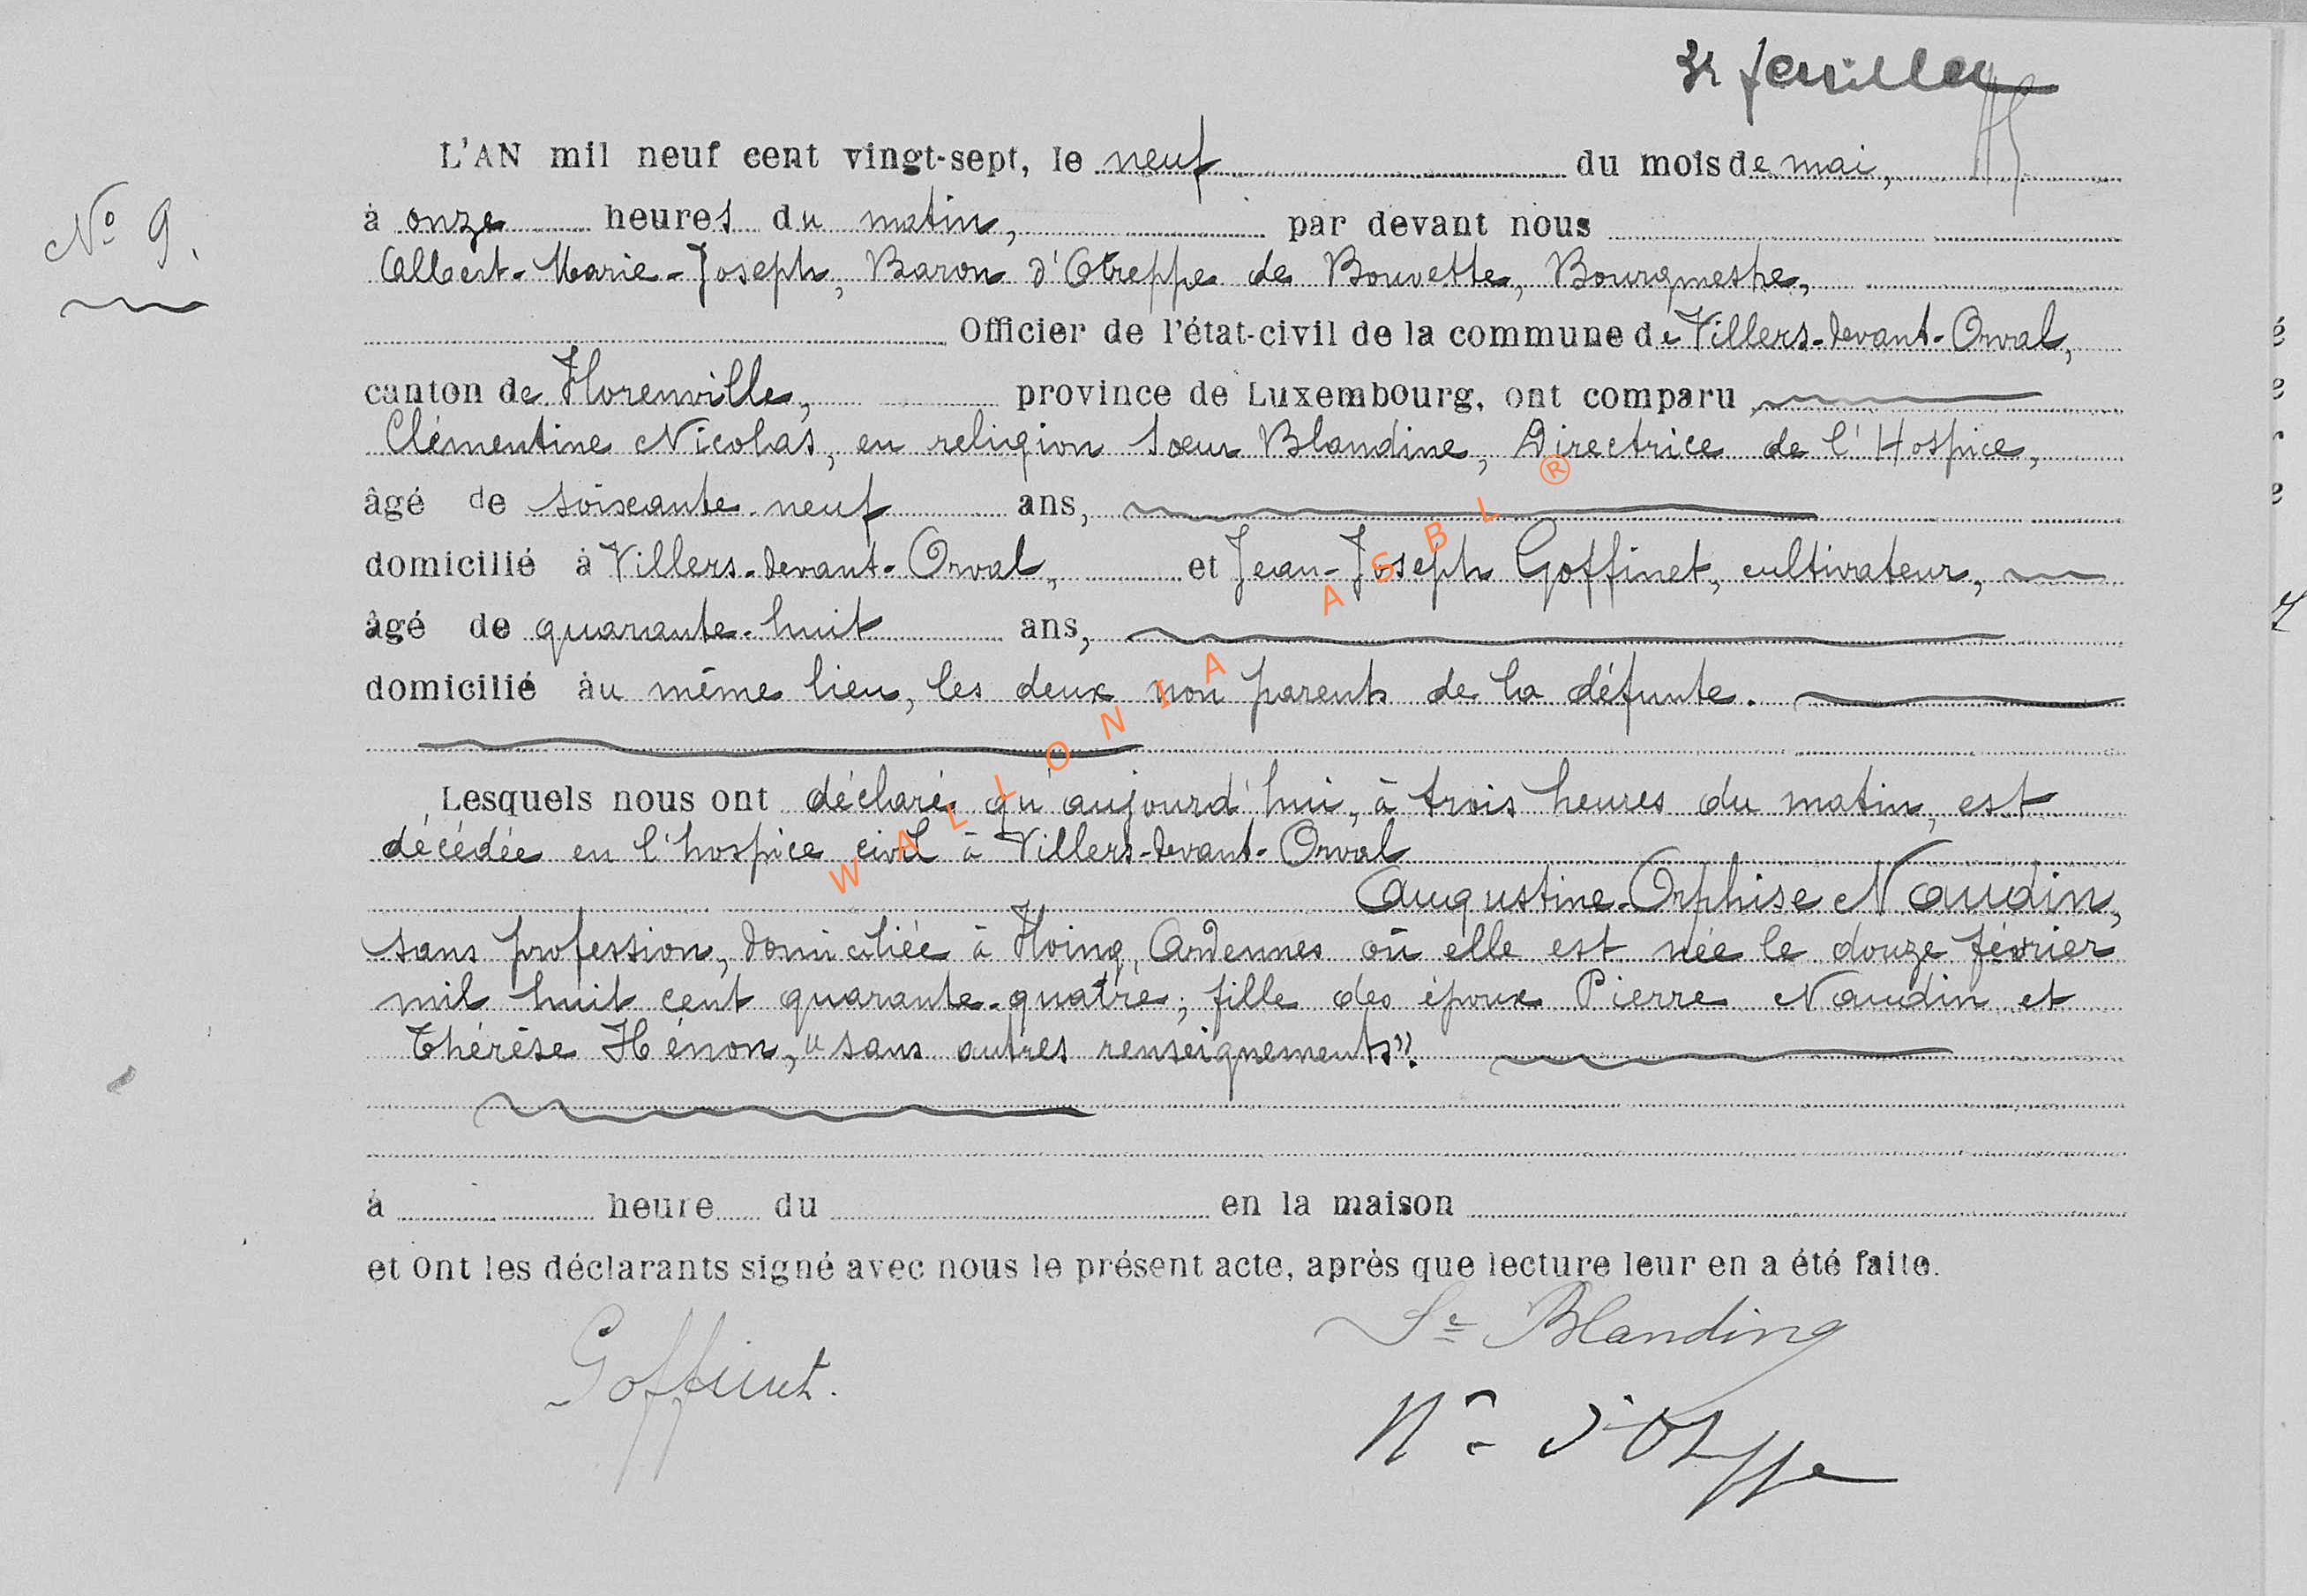 feuillet
L'AN mil neuf cent vingt-sept, le neuf du mois de mai,
No 9.
à onze heures du matin, par devant nous
Albert-Marie-Joseph, Baron d'Otreppe de Bouvette, Bourgmestre,
Officier de l'état-civil de la commune de Villers-devant-Orval,
canton de Florenville, province de Luxembourg, ont comparu
Clémentine Nicolas, en religion Sœur Blandine, Directrice de l'Hospice,
âgé de soixante-neuf ans,
domicilié à Villers-devant-Orval, et Jean-Joseph Goffinet, cultivateur,
âgé de quarante-huit ans,
domicilié au même lieu, les deux non parents de la défunte.
Lesquels nous ont déclaré qu'aujourd'hui, à trois heures du matin, est
décédée en l'hospice civil à Villers-devant-Orval
Augustine-Orphise Naudin,
sans profession, domiciliée à Floing, Ardennes où elle est née le douze février
mil huit cent quarante-quatre; fille des époux Pierre Naudin et
Thérèse Hénon, "sans autres renseignements".
à heure du en la maison
et ont les déclarants signé avec nous le présent acte, après que lecture leur en a été faite.
Sr Blandine
Goffinet.
d'Otreppe
WALLONIA ASBL ®